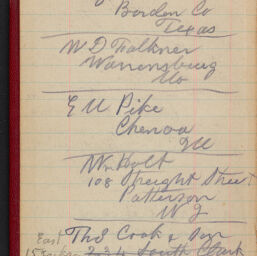 Borden Co
Texas
W D Falkner
Warrensburg
Mo
E U Pike
Chenoa
Ill
Wm Holt
108 Speight Street
Patterson
N J
Thos Cook & Son
East
234 South Clark